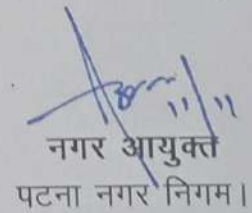 11/11
नगर आयुक्त
पटना नगर निगम।